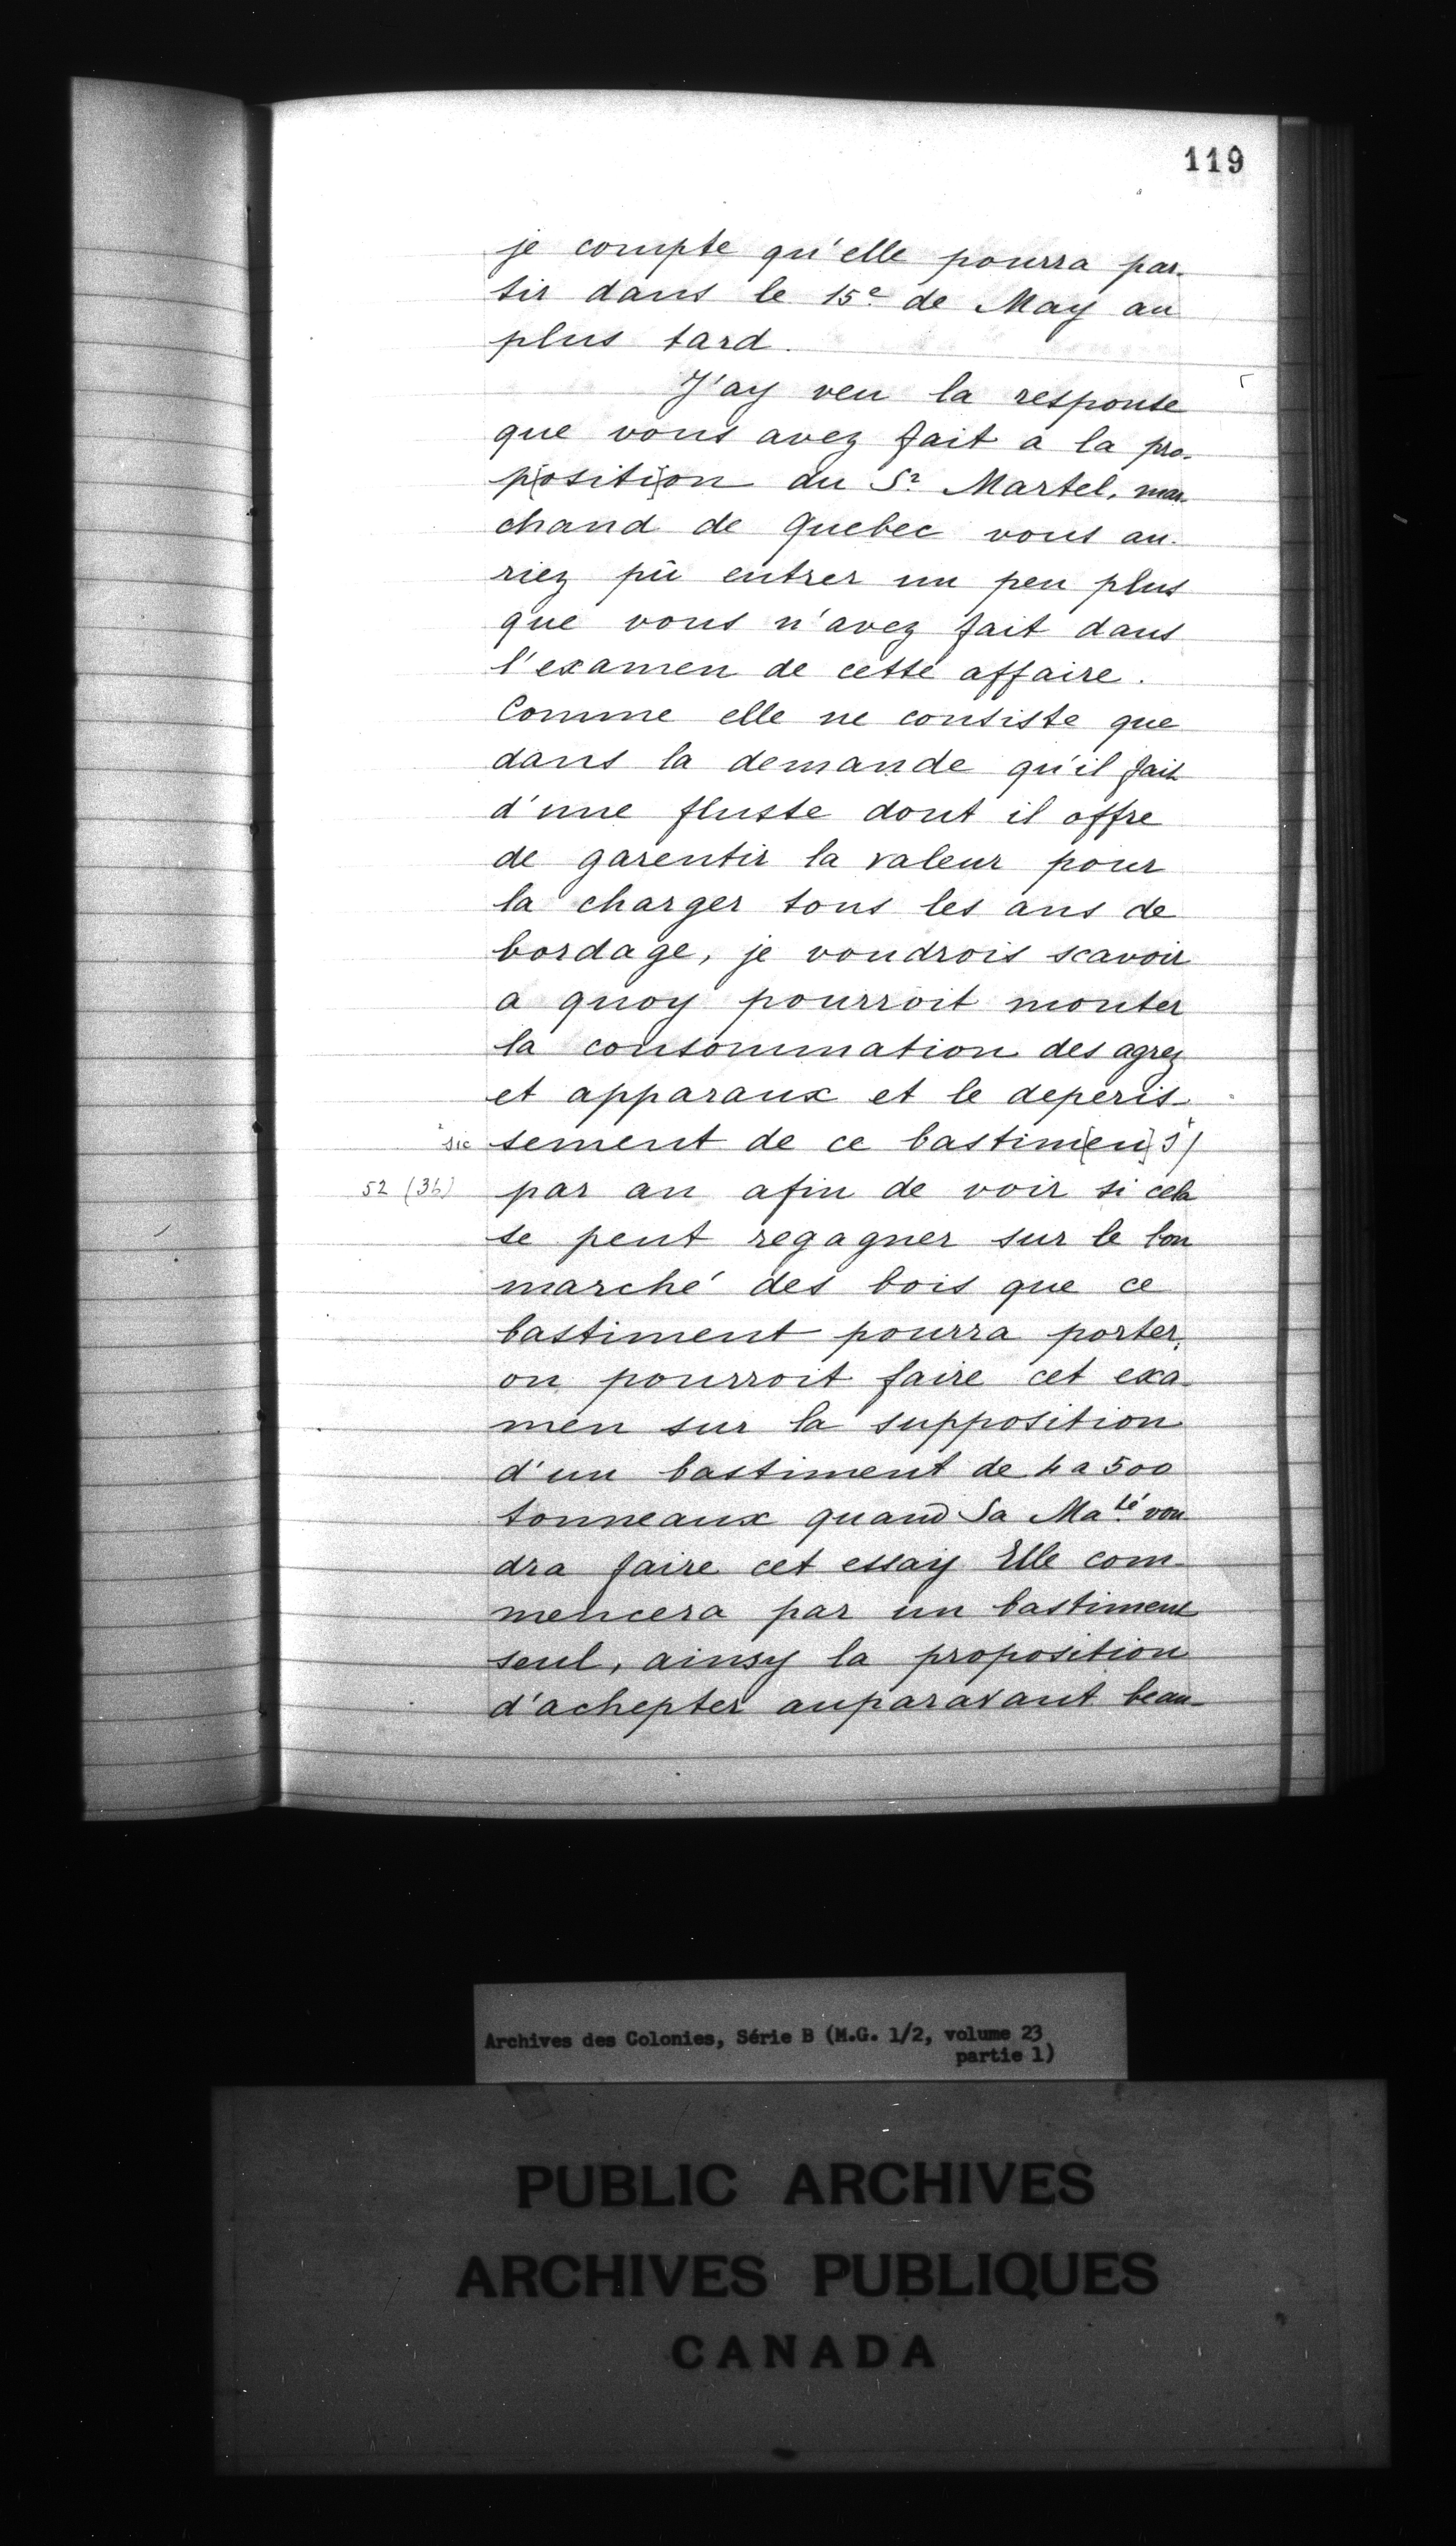 119
je compte qu'elle pourra par-
tir dans le 15e de May au
plus tard.
J'ay veu la response
que vous avez fait a la pro-
p[ositi]on du Sr Martel, mar-
chand de Quebec vous au-
riez pû entrer un peu plus
que vous n'avez fait dans
l'examen de cette affaire.
Comme elle ne consiste que
dans la demande qu'il fait
d'une fluste dont il offre
de garentir la valeur pour
la charger tous les ans de
bordage, je voudrois scavoir
a quoy pourroit monter
la consommation des agrez
et apparaux et le deperis-
sic sement de ce bastim[en]
52 (36) par an afin de voir si cela
se peut regagner sur le bon
marché des bois que ce
bastiment pourra porter,
on pourroit faire cet exa-
men sur la supposition
d'un bastiment de 4 a 500
tonneaux quand Sa Maté vou
dra faire cet essay Elle com-
mencera par un bastiment
seul, ainsy la proposition
d'achepter auparavant beau-
Archives des Colonies, Série B (M.G. 1/2, volume 23
partie 1)
PUBLIC ARCHIVES
ARCHIVES PUBLIQUES
CANADA